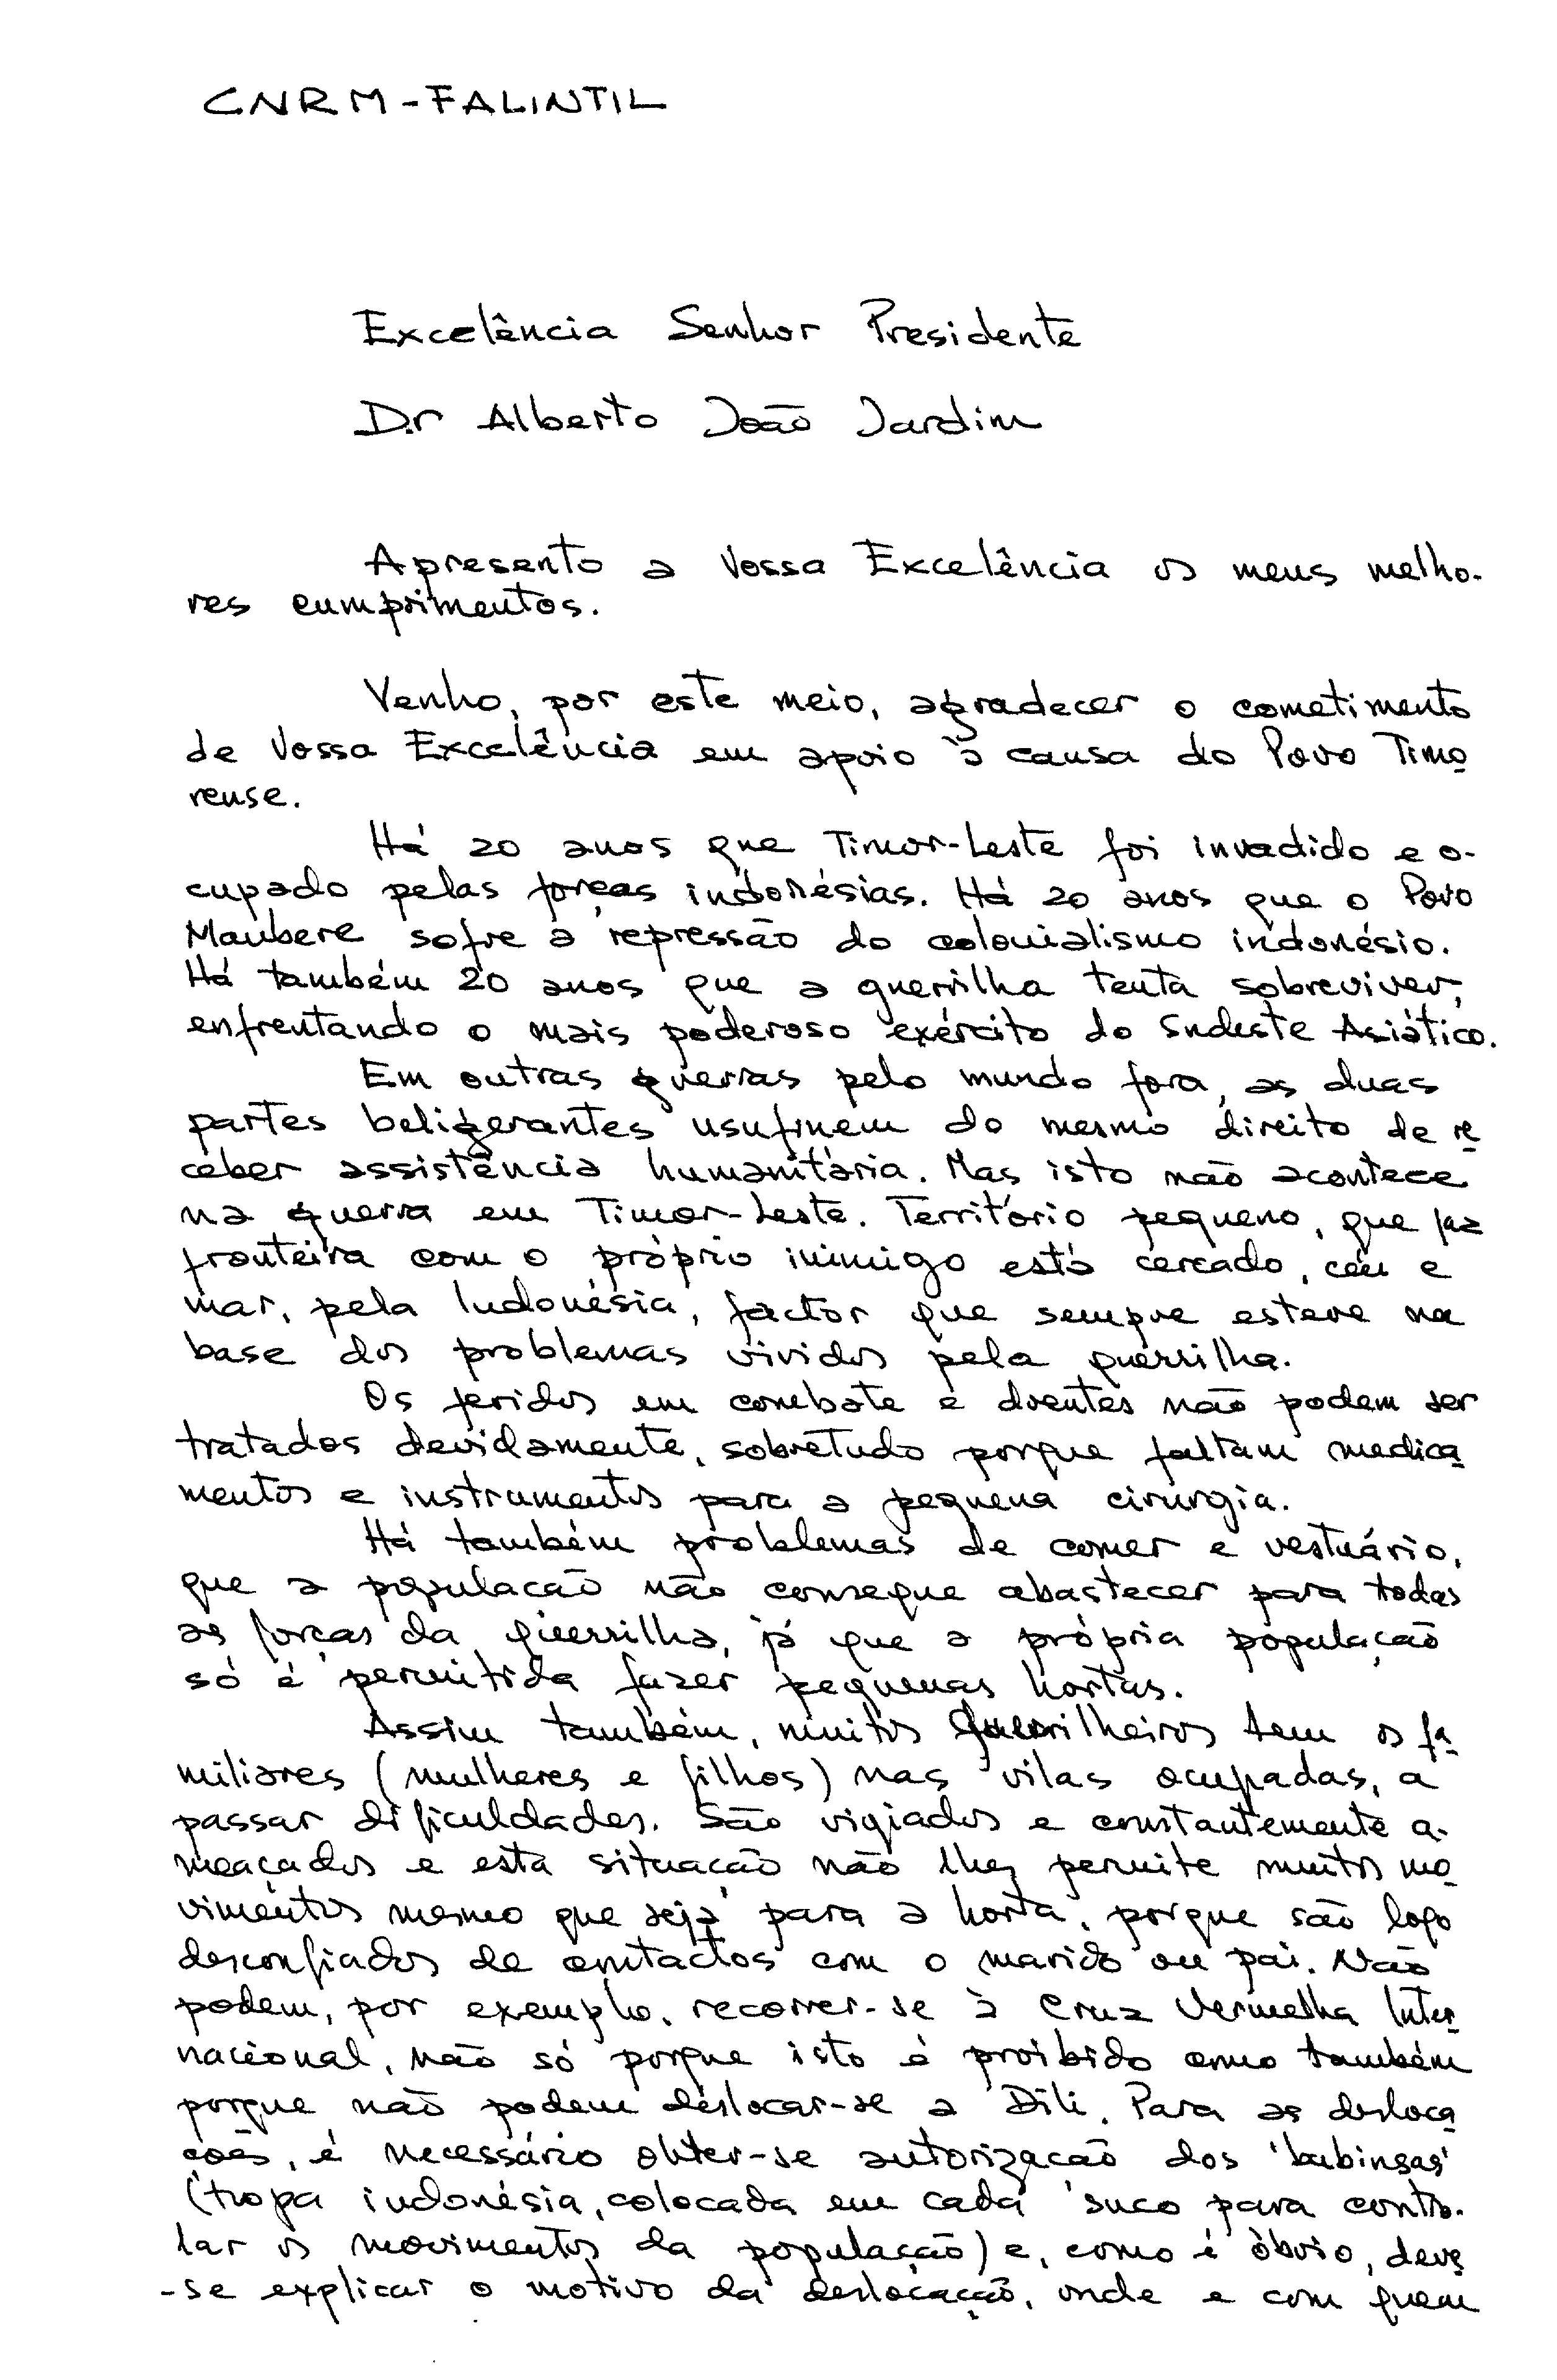 CNRM-FALINTIL
Excelência Senhor Presidente
Dr Alberto João Jardim
Apresento a Vossa Excelência os meus melho-
res cumprimentos.
Venho, por este meio, agradecer o cometimento
de Vossa Excelência em apoio à causa do Povo Timo
rense.
Há 20 anos que Timor-Leste foi invadido e o-
cupado pelas forças indonésias. Há 20 anos que o Povo
Maubere sofre a repressão do colonialismo indonésio.
Há também 20 anos que a guerrilha tenta sobreviver,
enfrentando o mais poderoso exército do Sudeste Asiático.
Em outras guerras pelo mundo fora, as duas
partes beligerantes usufruem do mesmo direito de re
ceber assistência humanitária. Mas isto não acontece
na guerra em Timor-Leste. Território pequeno, que faz
fronteira com o próprio inimigo está cercado, céu e
mar, pela Indonésia, factor que sempre esteve na
base dos problemas vividos pela guerrilha.
Os feridos em combate e doentes não podem ser
tratados devidamente, sobretudo porque faltam medica
mentos e instrumentos para a pequena cirurgia.
Há também problemas de comer e vestuário,
que a população não consegue abastecer para todas
as forças da guerrilha, já que a própria população
só é permitida fazer pequenas hortas.
Assim também, muitos guerrilheiros tem os fa
miliares (mulheres e filhos) nas vilas ocupadas, a
passar dificuldades. São vigiados e constantemente a-
meaçados e esta situação não lhes permite muitos mo
vimentos mesmo que seja para a horta, porque são logo
desconfiados de contactos com o marido ou pai. Não
podem, por exemplo, recorrer-se à Cruz Vermelha Inter
nacional, não só porque isto é proibido como também
porque não podem deslocar-se a Dili. Para as desloca
ções, é necessário obter-se autorização dos 'babinsas'
(tropa indonésia, colocada em cada suco para contro-
lar os movimentos da população) e, como é óbvio, deve
-se explicar o motivo da deslocação, onde e com quem